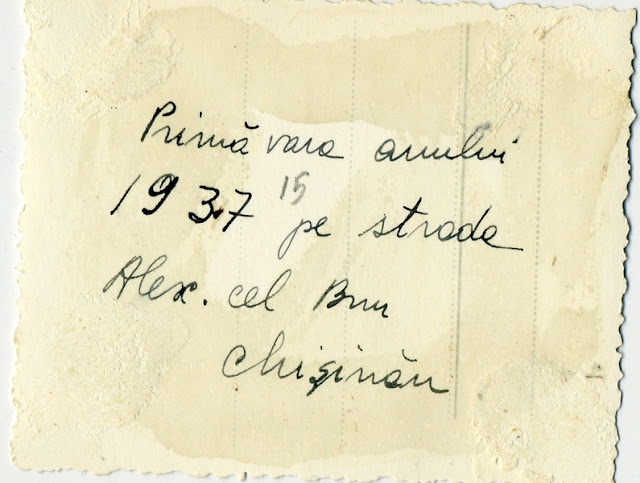 Primăvara anului
1937 15 pe strada
Alex. cel Bun
Chișinău